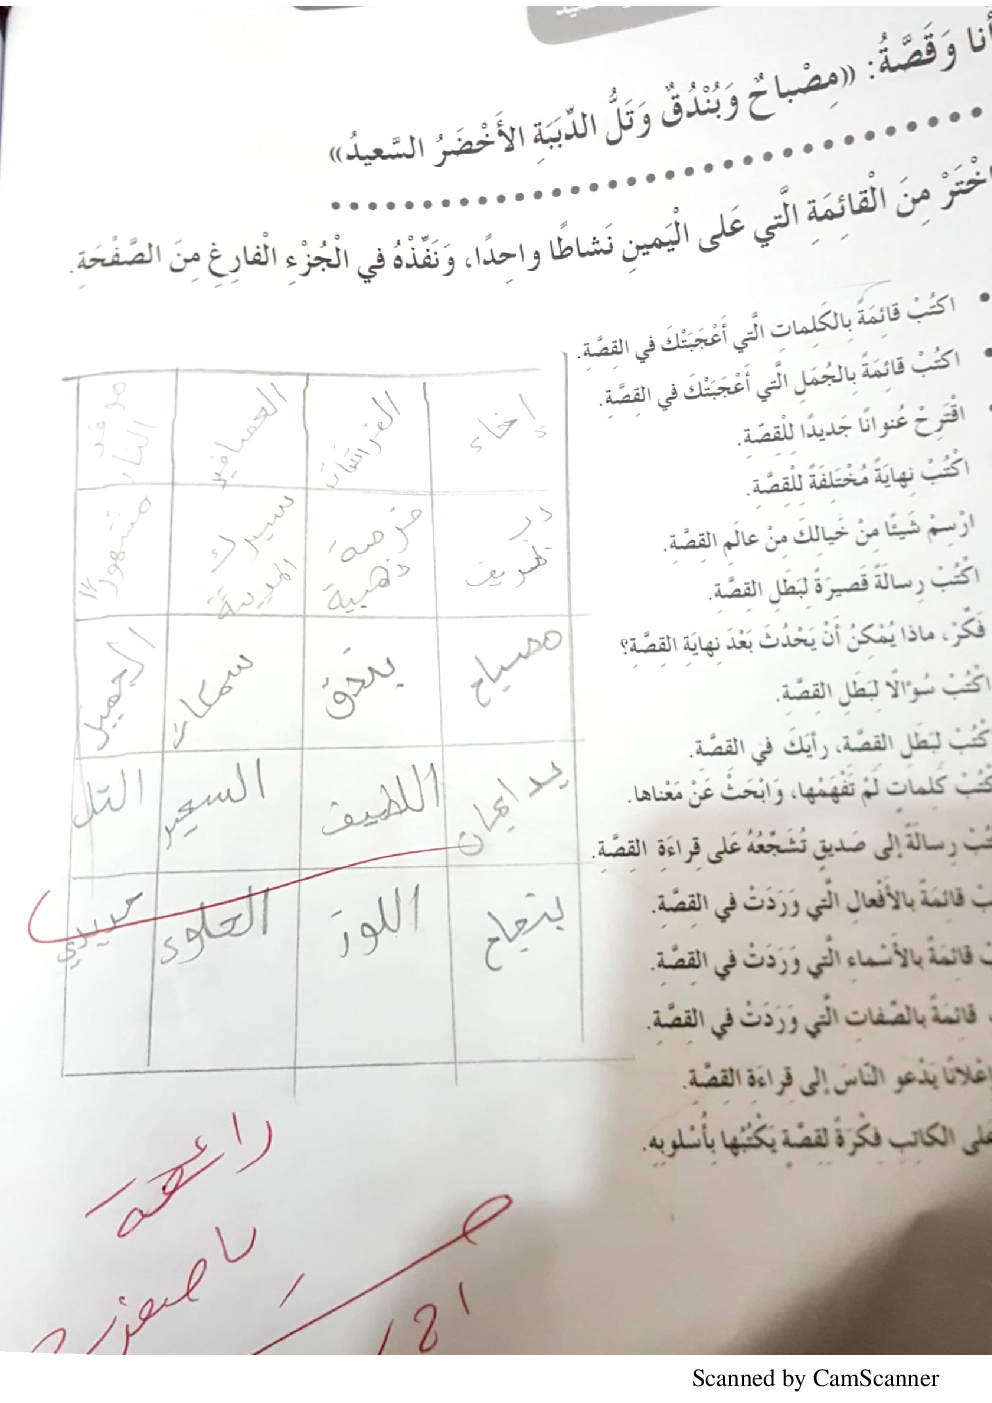 أَنا وَقَصَّةُ: «مِصْباحٌ وَبُنْدُقٌ وَتَلُّ الدِّبَبَةِ الأَخْضَرُ السَّعيدُ»
اخْتَرْ مِنَ الْقائِمَةِ الَّتي عَلى الْيَمينِ نَشاطًا واحِدًا، وَنَفِّذْهُ في الْجُزْءِ الْفارِغِ مِنَ الصَّفْحَةِ.
• اكتُبْ قائِمَةً بِالكَلِماتِ الَّتي أَعْجَبَتْكَ في القِصَّةِ.
• اكْتُبْ قائِمَةً بِالجُمَلِ الَّتي أَعْجَبَتْكَ في القِصَّةِ.
• اقْتَرِحْ عُنوانًا جَديدًا لِلْقِصّةِ.
اكْتُبْ نِهايَةً مُخْتَلِفَةً لِلْقِصَّةِ.
ارْسِمْ شَيئًا مِنْ خَيالِكَ مِنْ عالَمِ القِصَّةِ.
اكْتُبْ رِسالَةً قَصيرَةً لِبَطَلِ القِصَّةِ.
فَكِّرْ، ماذا يُمْكِنُ أَنْ يَحْدُثَ بَعْدَ نِهايَةِ القِصَّةِ؟
اكْتُبْ سُؤالًا لِبَطَلِ القِصَّةِ.
كْتُبْ لِبَطَلِ القِصَّةِ، رأيَكَ في القِصَّةِ.
كْتُبْ كَلِماتٍ لَمْ تَفْهَمْها، وَابْحَثْ عَنْ مَعْناها.
تُبْ رِسالَةً إِلى صَديقٍ تُشَجِّعُهُ عَلى قِراءَةِ القِصَّةِ.
بْ قائِمَةً بِالأَفْعالِ الَّتي وَرَدَتْ في القِصَّةِ.
بْ قائِمَةً بِالأَسْماءِ الَّتي وَرَدَتْ في القِصَّةِ.
قائِمَةً بِالصِّفاتِ الَّتي وَرَدَتْ في القِصَّةِ.
إِعْلانًا يَدْعو النّاسَ إِلى قِراءَةِ القِصَّةِ.
عَلى الكاتِبِ فِكْرَةً لِقِصَّةٍ يَكْتُبُها بِأُسْلوبِه.
إخاء الفراشات العصافير النار
دب ظريف فرصة ذهبية سيرك المدينة
مصباح بندق سمكات الجميل
يد إيمان اللطيف السعيد التل
بنجاح اللوز الحلوى حبيبي
رائعة
يا
Scanned by CamScanner